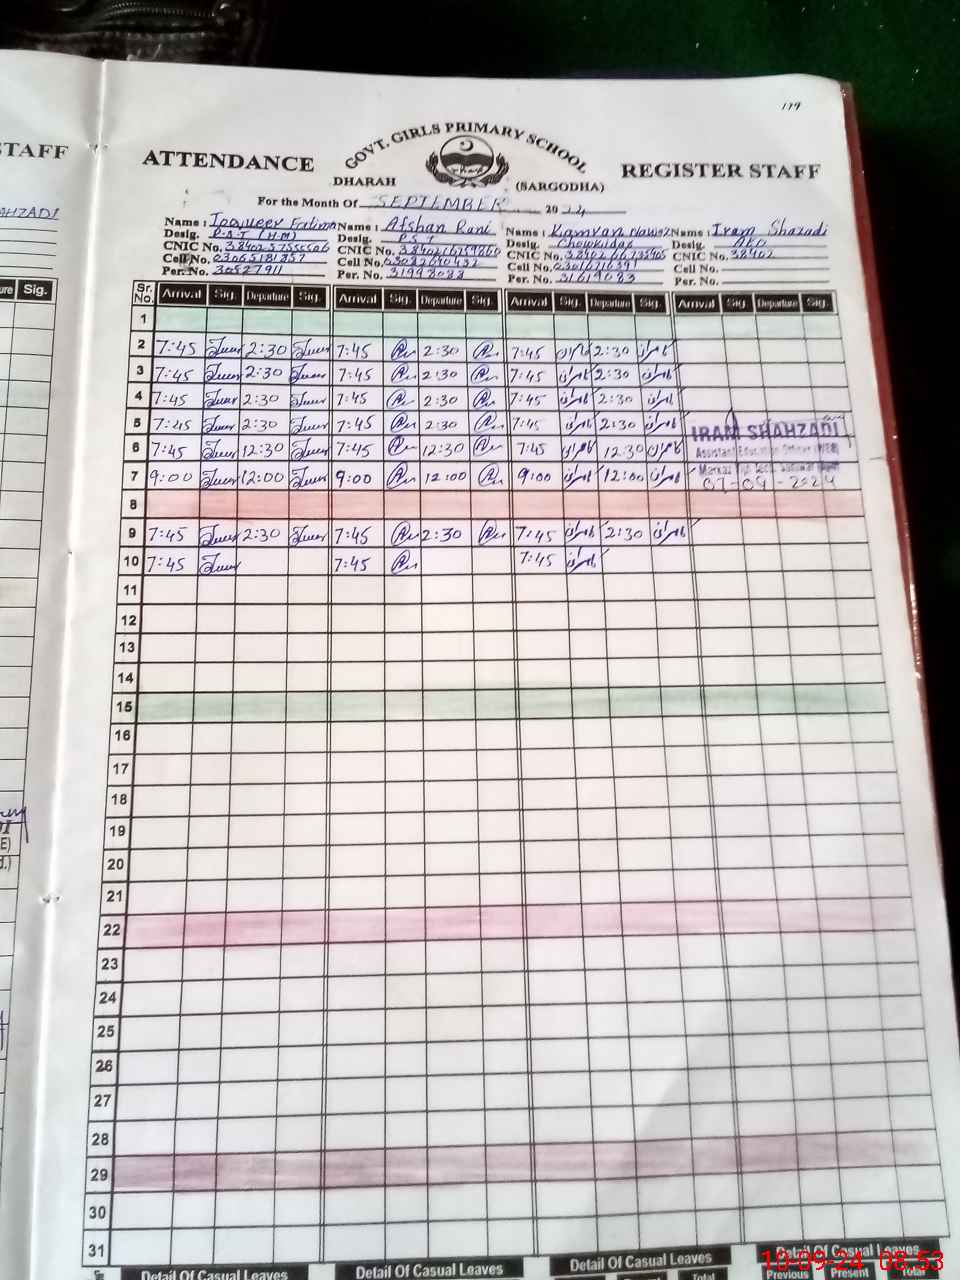 179
STAFF
GOVT. GIRLS PRIMARY SCHOOL
ATTENDANCE REGISTER STAFF
DHARAH (SARGODHA)
For the Month Of SEPTEMBER 2024
AHZADI
Name : Fatima Name : Afshan Rani Name : Kamran Nawaz Name : Iram Shazadi
Desig. P.S.T (H.M) Desig. P.S.T Desig. Chowkidar Desig. AEO
CNIC No. CNIC No. CNIC No. CNIC No. 38402
Cell No. Cell No. Cell No. Cell No.
Per. No. 30527911 Per. No. 31998083 Per. No. 31619083 Per. No.
ure Sig.
Sr. No. Arrival Sig. Departure Sig. Arrival Sig. Departure Sig. Arrival Sig. Departure Sig. Arrival Sig. Departure Sig.
1
2 7:45 2:30 7:45 2:30 7:45 کامران 2:30 کامران
3 7:45 2:30 7:45 2:30 7:45 کامران 2:30 کامران
4 7:45 2:30 7:45 2:30 7:45 کامران 2:30 کامران
5 7:45 2:30 7:45 2:30 7:45 کامران 2:30 کامران
IRAM SHAHZADI
6 7:45 12:30 7:45 12:30 7:45 کامران 12:30 کامران
Assistant Education Officer
7 9:00 12:00 9:00 12:00 9:00 کامران 12:00 کامران
Markaz
07-09-2024
8
9 7:45 2:30 7:45 2:30 7:45 کامران 2:30 کامران
10 7:45 7:45 7:45 کامران
11
12
13
14
15
16
17
18
19
20
21
22
23
24
25
26
27
28
29
30
31
Detail Of Casual Leaves Detail Of Casual Leaves Detail Of Casual Leaves Detail Of Casual Leaves
Total Previous Present Total
10-09-24 08:53